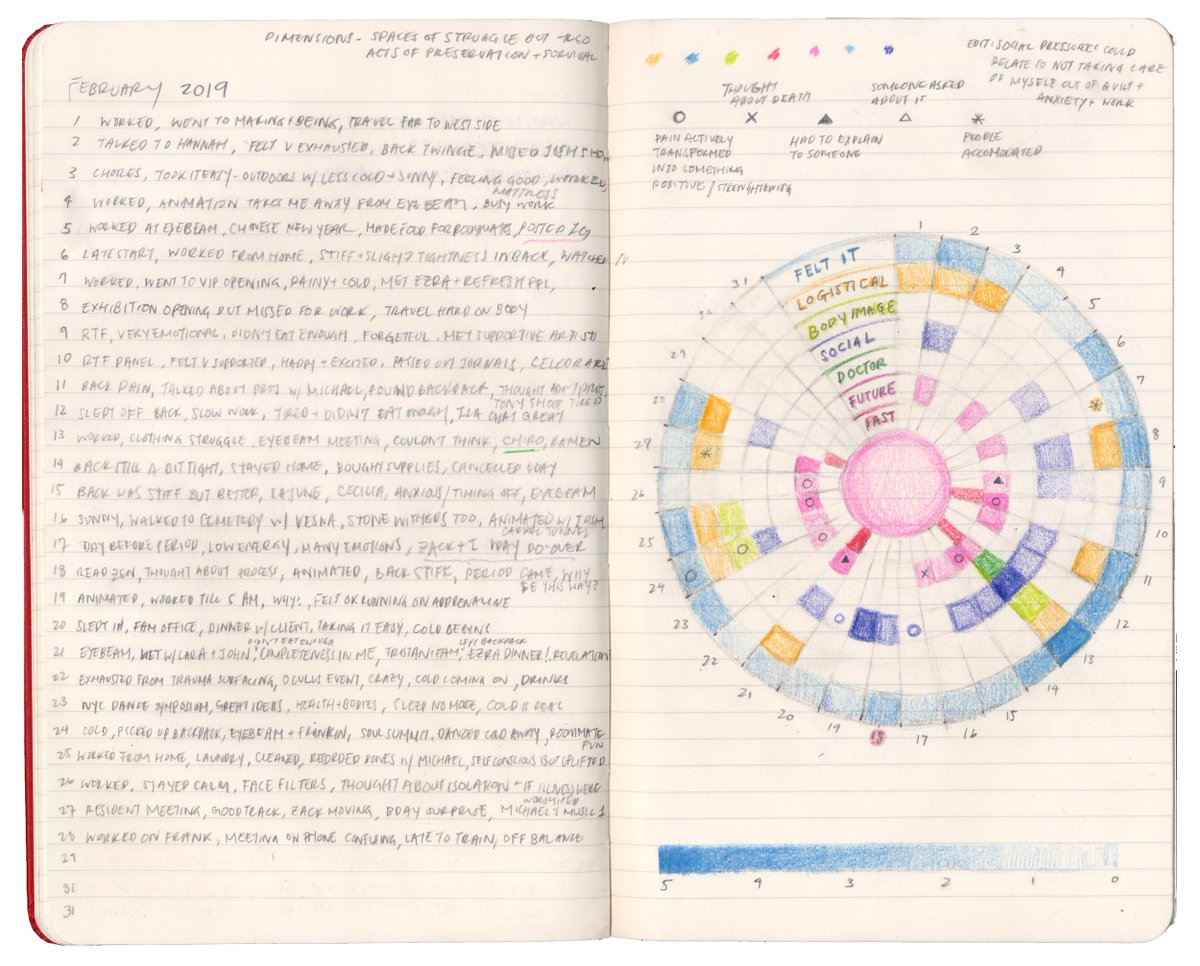 DIMENSIONS - SPACES OF STRUGGLE BUT ALSO
ACTS OF PRESERVATION + SURVIVAL
FEBRUARY 2019
1 WORKED, WENT TO MAKING + BEING, TRAVEL FAR TO WEST SIDE
2 TALKED TO HANNAH, FELT V EXHAUSTED, BACK TWINGE, MISSED JOSH SHOW
3 CHORES, TOOK IT EASY - OUTDOORS W/ LESS COLD + SUNNY, FEELING GOOD, WORKED,
MATTRESS
4 WORKED, ANIMATION TAKES ME AWAY FROM EYEBEAM, BUSY WORK
5 WORKED AT EYEBEAM, CHINESE NEW YEAR, MADE FOOD FOR ROOMMATES, POSTED IG
6 LATE START, WORKED FROM HOME, STIFF + SLIGHT TIGHTNESS IN BACK, WATCHED TV
7 WORKED, WENT TO VIP OPENING, RAINY + COLD, MET EZRA + REFRESH PPL,
8 EXHIBITION OPENING BUT MISSED FOR WORK, TRAVEL HARD ON BODY
9 RTF, VERY EMOTIONAL, DIDN'T EAT ENOUGH, FORGETFUL, MET SUPPORTIVE ARTISTS
10 RTF PANEL, FELT V SUPPORTED, HAPPY + EXCITED, PASSED OUT JOURNALS, CELEBRATED
11 BACK PAIN, TALKED ABOUT PROJ W/ MICHAEL, FOUND BACKPACK, THOUGHT ABOUT
TONY SHOOT TIRED
12 SLEPT OFF BACK, SLOW WORK, TIRED + DIDN'T EAT ENOUGH, ILA CHAT GREAT
13 WORKED, CLOTHING STRUGGLE, EYEBEAM MEETING, COULDN'T THINK, CHIRO, RAMEN
14 BACK STILL A BIT TIGHT, STAYED HOME, BOUGHT SUPPLIES, CANCELLED VDAY
15 BACK WAS STIFF BUT BETTER, LAJUNE, CECILIA, ANXIOUS / TIMING OFF, EYEBEAM
16 SUNNY, WALKED TO CEMETERY W/ VESNA, STONE WITHERS TOO, ANIMATED W/ JOSH
CARPAL TUNNEL
17 DAY BEFORE PERIOD, LOW ENERGY, MANY EMOTIONS, ZACK + I VDAY DO-OVER
18 READ ZEN, THOUGHT ABOUT PROCESS, ANIMATED, BACK STIFF, PERIOD CAME, WHY
BE THIS WAY?
19 ANIMATED, WORKED TILL 5 AM, WHY?, FELT OK RUNNING ON ADRENALINE
20 SLEPT IN, FAM OFFICE, DINNER W/ CLIENT, TAKING IT EASY, COLD BEGINS
DIDN'T EAT ENOUGH LEFT BACKPACK
21 EYEBEAM, MET W/ LARA + JOHN, "COMPLETENESS IN ME, TRISTAN + FAM, EZRA DINNER!, REVELATION
22 EXHAUSTED FROM TRAUMA SURFACING, OCULUS EVENT, CRAZY, COLD COMING ON, DRINKS
23 NYC DANCE SYMPOSIUM, GREAT IDEAS, HEALTH + BODIES, SLEEP NO MORE, COLD IS REAL
24 COLD, PICKED UP BACKPACK, EYEBEAM + FRANKLIN, SOUL SUMMIT, DANCED COLD AWAY, ROOMMATE
FUN
25 WORKED FROM HOME, LAUNDRY, CLEANED, RECORDED BONES W/ MICHAEL, SELF CONSCIOUS BUT UPLIFTED
26 WORKED, STAYED CALM, FACE FILTERS, THOUGHT ABOUT ISOLATION + IF ILLNESS
WORSHIPED
27 RESIDENT MEETING, GOOD TRACK, ZACK MOVING, BDAY SURPRISE, MICHAEL'S MUSIC
28 WORKED ON FRANK, MEETING ON PHONE CONFUSING, LATE TO TRAIN, OFF BALANCE
29
30
31
EDIT: SOCIAL PRESSURES COULD
RELATE TO NOT TAKING CARE
OF MYSELF OUT OF GUILT +
ANXIETY + WORK
THOUGHT
ABOUT DEATH
SOMEONE ASKED
ABOUT IT
PAIN ACTIVELY
TRANSFORMED
INTO SOMETHING
POSITIVE / STRENGTHENING
HAD TO EXPLAIN
TO SOMEONE
PEOPLE
ACCOMODATED
FELT IT
LOGISTICAL
BODY IMAGE
SOCIAL
DOCTOR
FUTURE
PAST
1
2
3
4
5
6
7
8
9
10
11
12
13
14
15
16
17
18
19
20
21
22
23
24
25
26
28
28
29
30
31
5 4 3 2 1 0